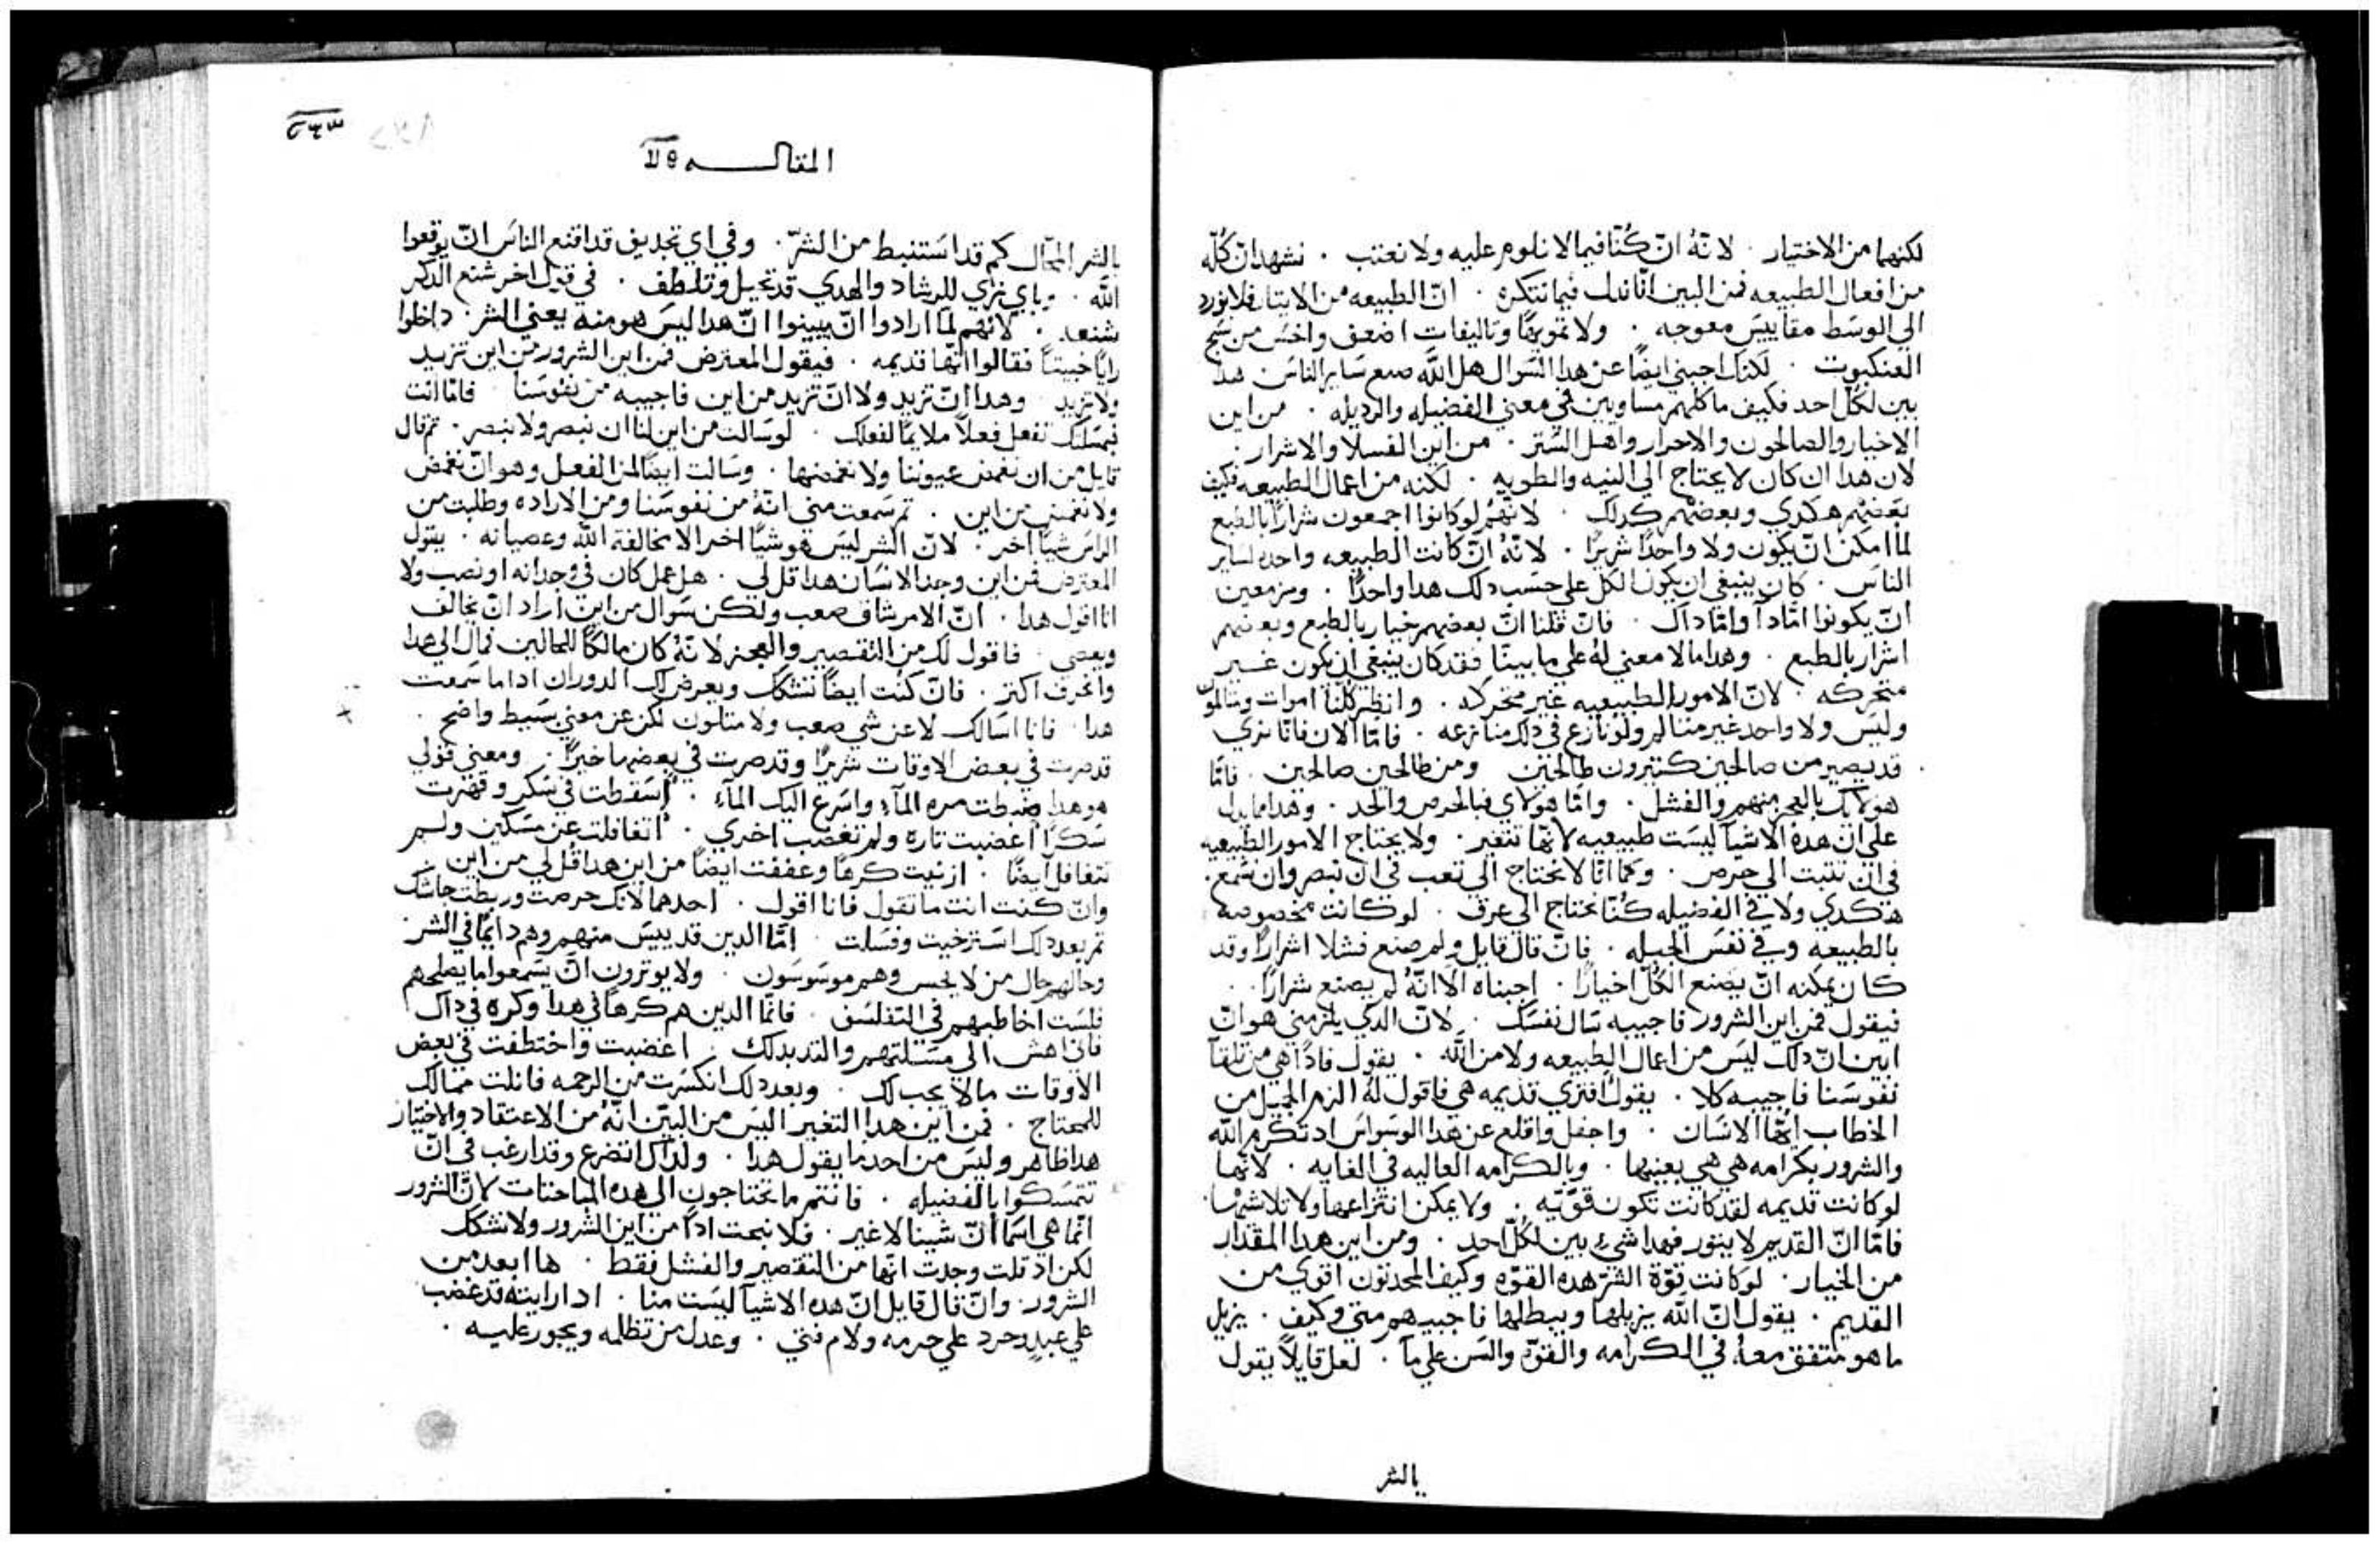 لكنهما من الاختيار . لانّهُ انّ كُنّا فيما لا نلوم عليه ولا نعتب . نشهد انّ كُلّه
من افعال الطبيعه فمن البين انّا ندل فيما نتكره . انّ الطبيعه من الابتا فلا نورد
الي الوسَط مقاييسَ معوجه . ولا تمويهًا وتاليفات اضعف واخسَ من نسَج
العنكبوت . لكنك اجبني ايضًا عن هدا السَوال هل اللَّه صنع سَاير الناسَ هدا
بين لكُل احد فكيف ما كلهم متساويين في معني الفضيله والرديله . من اين
الاخيار والصالحون والاحرار واهل الستر . من اين الفسلا والاشرار .
لان هدا ان كان لا يحتاج الي النيه والطويه . لكنه من اعمال الطبيعه فكيف
بعضهم هكدي وبعضهم كدلك . لانّهُم لو كانوا اجمعون شرارًا بالطبع
لما امكن انّ يكون ولا واحدًا شريرًا . لانّهُ انّ كانت الطبيعه واحده لساير
الناسَ . كان ينبغي ان يكون الكل علي حسَب دلك هدا واحدًا . ومزمعين
انّ يكونوا امّا دا وامّا داك . فانّ قلنا انّ بعضهم خيار بالطبع وبعضهم
اشرار بالطبع . وهدا ما لا معني لهُ علي ما بينّا فقد كان ينبغي ان يكون غير
متحركه . لانّ الامور الطبيعيه غير متحركه . وانظر كلّنا اموات ومتالمون
وليسَ ولا واحد غير متالم ولو نازع في دلك منازعه . فامّا الان فانّا نري
قد يصير من صالحين كتيرون طالحين ومن طالحين صالحين . فامّا
هولايك بالعجز منهم والفشل . وامّا هولاي فبالحرص والجد . وهدا ما يدل
علي انّ هده الاشيآ ليسَت طبيعيه لانّها تتغير . ولا يحتاج الامور الطبيعيه
في ان تتبت الي حرص . وكما انّا لا نحتاج الي تعب في ان نبصر وان نسَمع .
هكدي ولا في الفضيله كُنّا نحتاج الي عرق . لو كانت مخصوصه
بالطبيعه وفي نفسَ الجبله . فانّ قال قايل ولم صنع فشلا اشرارًا وقد
كان يمكنه انّ يصَنع الكُلّ اخيارًا . اجبناه الا انّهُ لم يصنع شرارًا .
فيقول فمن اين الشرور فاجيبه سَال نفسَك . لانّ الدي يلزمني هو انّ
ابين انّ دلك ليسَ من اعمال الطبيعه ولا من اللَّه . يقول فادًا هي من تلقآ
نفوسَنا فاجيبه كلا . يقول افتري قديمه هي فاقول لهُ الزم الجميل من
الخطاب ايّها الانسَان . واجفل واقلع عن هدا الوسَواسَ اد تكرم اللَّه
والشرور بكرامه هي هي بعينها . وبالكرامه العاليه في الغايه . لانّها
لو كانت قديمه لقد كانت تكون قوّيّه . ولا يمكن انتزاعها ولا تلاشيها .
فامّا انّ القديم لا يبور فهدا شيء بين لكُل احد . ومن اين هدا المقدار
من الخيار . لو كانت قوّة الشرّ هده القوّه وكيف المحدتون اقوي من
القديم . يقول انّ اللَّه يزيلها ويبطلها فاجيبهم متي وكيف . يزيل
ما هو متفق معهُ في الكرامه والقوّه والسَن علي مآ . لعل قايلًا يقول
بالشر
المقالـــــه
بالشر المحَال كم قد اسَتنبط من الشرّ . وفي اي تجديف قد اقنع الناسَ انّ يوقعوا
اللَّه . وباي نزاي للرشاد والهدي قد تحيل وتلطف . في قيل اخر شنع الدكر
شنعه . لانهم لما ارادوا انّ يبينوا انّ هدا ليسَ هو منه يعني الشر . داخلوا
رايًا خبيتًا فقالوا انّها قديمه . فيقول المعترض فمن اين الشرور من اين تزيد
ولا تريد . وهدا انّ تريد ولا انّ تريد من اين فاجيبه من نفوسَنا . فامّا انت
فمسَلتك تفعل فعلًا ملايمًا لفعلك . لو سَالت من اين لنا ان نبصر ولا نبصر . تم قال
قايل من ان نغمض عيوننا ولا نغمضها . وسَالت ايضًا لمن الفعل وهو انّ نغمض
ولا نغمض من اين . تم سَمعت مني انّهُ من نفوسَنا ومن الاراده وطلبت من
الراسَ شيًا اخر . لانّ الشر ليسَ هو شيًا اخر الا مخالفة اللَّه وعصيانه . يقول
المعترض فمن اين وجد الانسَان هدا قل لي . هل عمل كان في وجدانه او نصب ولا
انا اقول هدا . انّ الامر شاق صعب ولكن سَوال من اين اراد انّ يخالف
ويعصي . فاقول لك من التقصير والعجز لانّهُ كان مالكًا للحالين فمال الي هدا
وانحرف اكتر . فانّ كنت ايضًا تتشكك ويعرض لك الدوران ادا ما سَمعت
هدا . فانا اسَالك لا عن شي صعب ولا متلون لكن عن معني بسَيط واضح .
قد صرت في بعض الاوقات شريرًا وقد صرت في بعضها خيرًا . ومعني قولي
هو هدا ضبطت مره المآء واسَرع اليك المآء . اسَقطت في سَكر وقهرت
سَكرًا اغضبت تاره ولم تغضب اخري . اتغافلت عن مسَكين ولم
تتغافل ايضًا . ازنيت كرهًا وعففت ايضًا من اين هدا قُل لي من اين
وانّ كنت انت ما تقول فانا اقول . احدهما لانك حرصت وربطت جاشك
تم بعد دلك اسَترخيت وفسَلت . امّا الدين قد ييسَ منهم وهم دايمًا في الشر
وحالهم حال من لا يحس وهم موسَوسَون . ولا يوترون انّ يسَمعوا ما يصلحهم
فلسَت اخاطبهم في التفلسَف . فامّا الدين هم كرهًا في هدا وكره في داك
فاني اهش الي مسَلتهم والتد بدلك . اغضبت واختطفت في بعض
الاوقات ما لا يجب لك . وبعد دلك انكسَرت من الرحمه فانلت ممالك
للمحتاج . فمن اين هدا التغير اليسَ من البيّن انّهُ من الاعتقاد والاختيار
هدا ظاهر وليسَ من احد ما يقول هدا . ولداك اتضرع وقد ارغب في انّ
تتمسَكوا بالفضيله . فانتم ما تحتاجون الي هده المباحتات لانّ الشرور
انّما هي اسَما انّ شينا لا غير . فلا تبحت ادًا من اين الشرور ولا تشكك
لكن اد قلت وجدت انّها من التقصير والفشل فقط . ها ابعد من
الشرور . وانّ قال قايل انّ هده الاشيآ ليسَت منا . ادا رايته قد غضب
علي عبد وحرد علي حرمه ولام فتي . وعدل من تظلمه ويجور عليه .